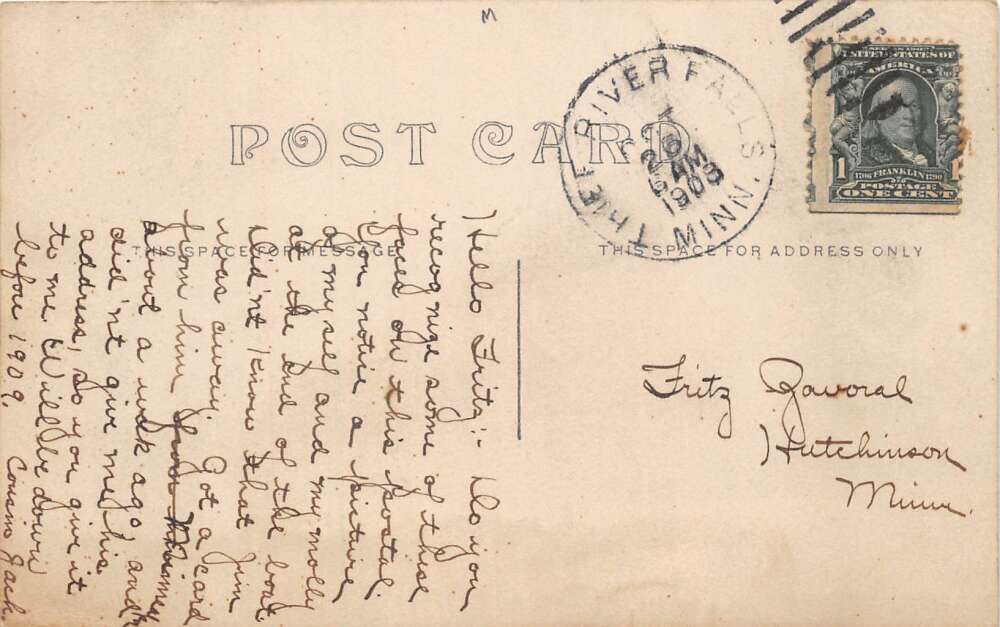 M
POST CARD
THIEF RIVER FALLS MINN.
26
AM
1908
SERIES 1902
UNITED STATES OF
AMERICA
1 1706 FRANKLIN 1790 1
POSTAGE
ONE CENT
THIS SPACE FOR MESSAGE
THIS SPACE FOR ADDRESS ONLY
Hello Fritz:- Do you
recognize some of these
faces on this postal.
You notice a picture
of myself and my molly
at the end of the boat.
Did'nt know that Jim
was away. Got a card
from him from
about a week ago and
did'nt give me his
address, so you give it
to me. Will be down
before 1909. Cousin Jach.
Fritz Zavoral
Hutchinson
Minn.